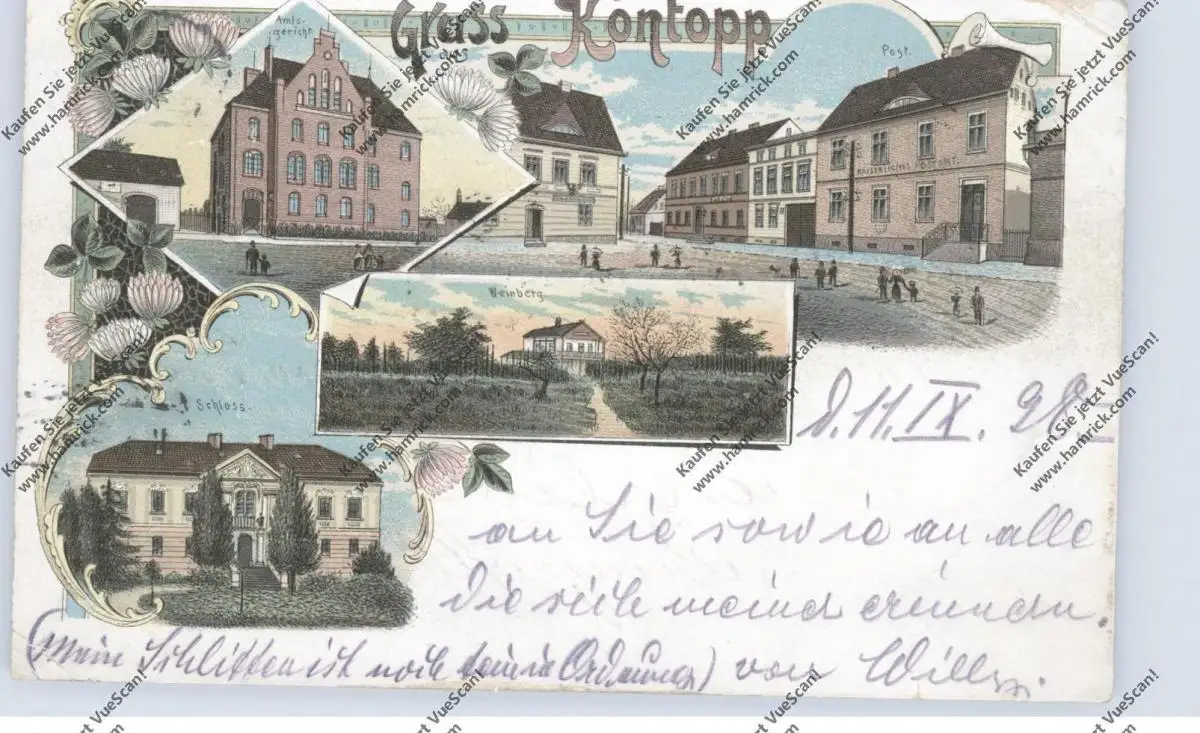 Gruss
aus
Kontopp
Amts-
gericht
Post.
KAISERLICHES POSTAMT.
Weinberg
Schloss.
d. 11. IX. 98
an Sie sowie an alle
die sich meiner erinnern.
(Mein Schlitten ist noch in Ordnung) von Willy.
Kaufen Sie jetzt VueScan!
www.hamrick.com